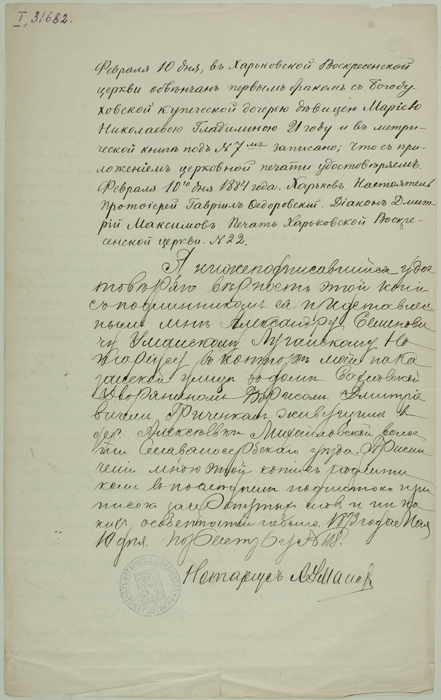 I, 31682.
Февраля 10 дня, въ Харьковской Воскресенской
церкви обвѣнчанъ первымъ бракомъ съ Богоду-
ховской купеческой дочерью дѣвицею Маріею
Николаевою Гладилиною 21 году и въ метри-
ческой книгѣ подъ № 7мъ записано; что съ при-
ложеніемъ церковной печати удостовѣряемъ.
Февраля 10го дня 1881 года. Харьковъ. Настоятель
Протоіерей Гавріилъ Ѳедоровскій. Діаконъ Дмит-
рій Максимовъ Печать Харьковской Воскре-
сенской церкви. № 22.
Я нижеподписавшійся удос-
товѣряю вѣрность этой копіи
съ подлинникомъ ея представлен-
нымъ мнѣ Александру Семенови-
чу Уманскому Луганскому Но-
таріусу въ конторѣ моей на Ка-
занской улицѣ въ домѣ
Дворяниномъ Борисомъ Дмитріе-
вичемъ Гринченкомъ живущимъ въ
дер. Алексѣевкѣ Михайловской волос-
ти Славяносербского уѣзда. При сли-
ченіи мною этой копіи съ подлинни-
комъ въ послѣднемъ подчистокъ при-
писокъ зачеркнутыхъ словъ и ни ка-
кихъ особенностей небыло. года Мая
10 дня. По реестру №
Нотаріусъ А Уманск